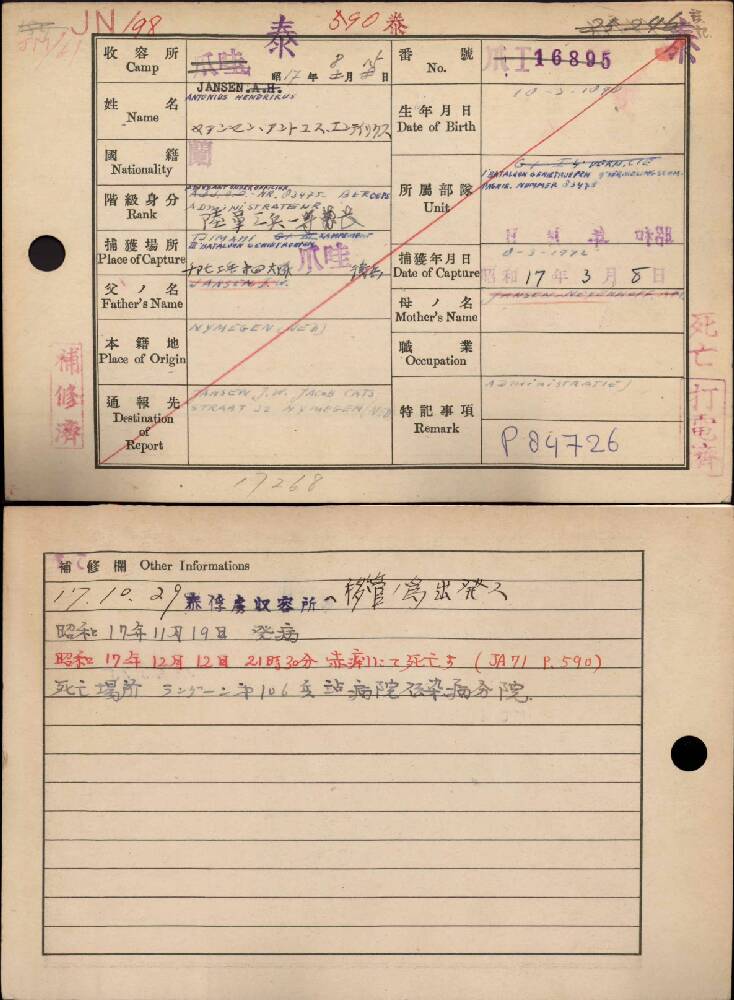 JN/98 泰 590 泰
收容所 Camp 爪哇 昭17年8月15日
番號 No. 爪I 16895
姓名 Name JANSEN. A.H.
ANTONIUS HENDRIKUS
ヤンセン、アントニウス、ヘンドリックス
生年月日 Date of Birth
國籍 Nationality 蘭
階級身分 Rank
ADMINISTRATEUR
陸軍工兵一等曹長
所属部隊 Unit
捕獲場所 Place of Capture TJIMAHI
爪哇
捕獲年月日 Date of Capture 8-3-1942
昭和17年3月8日
父ノ名 Father's Name JANSEN J.W.
母ノ名 Mother's Name
本籍地 Place of Origin NYMEGEN, NED)
職業 Occupation ADMINISTRATIE)
通報先 Destination of Report JANSEN J.W. JACOB CATS
STRAAT 32 NYMEGEN (NED
特記事項 Remark P 84726
補修濟
死亡 打電済
17268
補修欄 Other Informations
17.10.29 泰俘虜収容所へ移管ノ為出発ス
昭和17年11月19日 発病
昭和17年12月12日 21時30分 赤痢にて死亡す (JA71 P.590)
死亡場所 ラングーン第106兵站病院伝染病分院